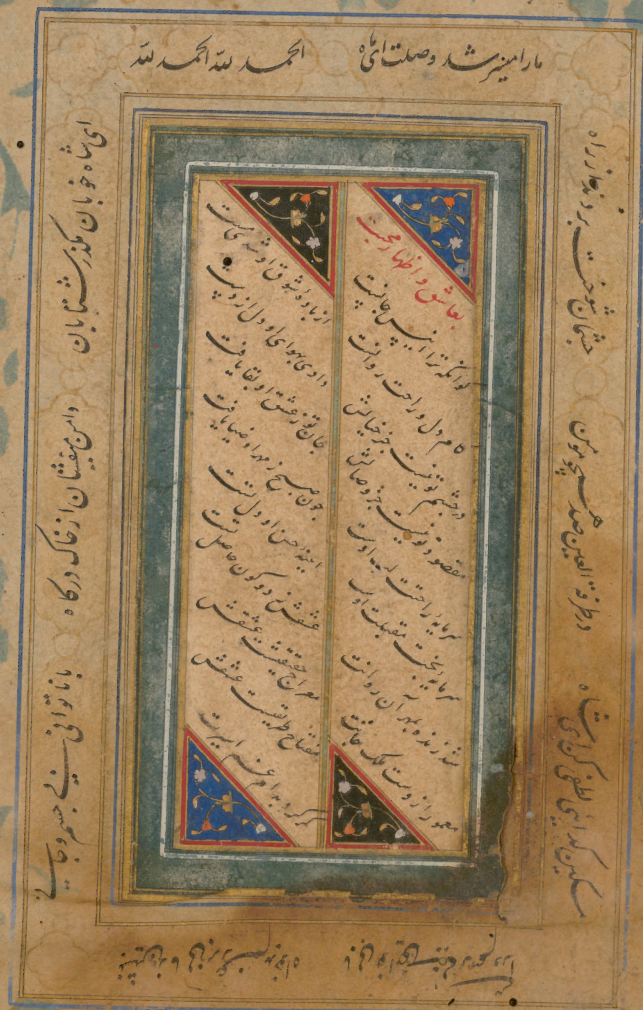 مارا میسر شد وصلت ای ماه
الحمد لله الحمد لله
چشمان شوخت بردند از راه
در طرفة العین صد همچو من
مسکین کدایی لطفی کن ای شاه
ای شاه خوبان مگذر شتابان
دامن میفشان از خاک درکاه
با ناتوانی بی جسم و جانی
بعاشق و اظهار محبت
کو آنکه ترا انیس جانست
کام دل و راحت روانست
در چشم تو نیست جز خیالش
مقصود تو نیست جز وصالش
سرمایه راحتت لب اوست
سرمایه بختت
شد زنده بمهر آن روانت
معمور از اوست ملک جانت
از باده شوق او شدی مست
دادی بهوای او دل از دست
جان تو ز عشق او بقا یافت
چون صبح ز مهر او ضیا یافت
آیینه حسن او دل تست
عشقش ز دو کون حاصل تست
معراج حقیقتست عشقش
مفتاح طریقتست عشقش